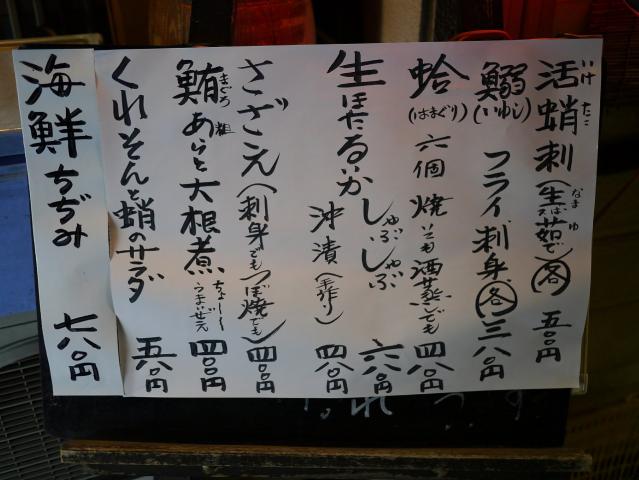 活蛸刺(生又ば茹で)各 五〇〇円
いけ たこ なま ゆ
鰯(いわし) フライ 刺身 各 三八〇円
蛤(はまぐり) 六個 焼いても酒蒸でも 四八〇円
生ほたるいか しゃぶしゃぶ 六八〇円
沖漬(手作り) 四八〇円
さざえ(刺身でもつぼ焼でも) 四〇〇円
鮪あらと大根煮 ちょ〜うまいぜえ 四〇〇円
まぐろ 粗
くれそんと蛸のサラダ 五八〇円
海鮮ちぢみ 七八〇円